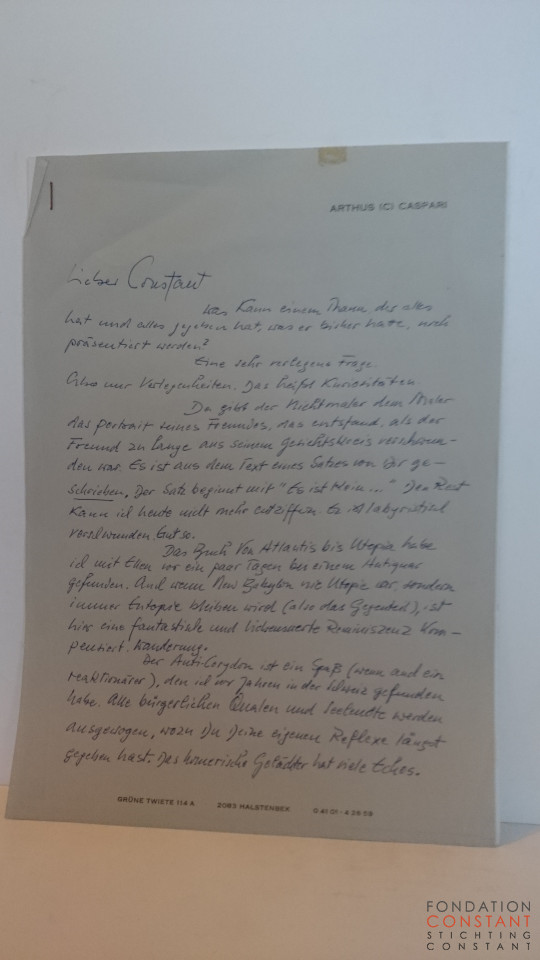 ARTHUS ICI CASPARI
Lieber Constant
Was kann einem Mann der alles
hat und alles gegeben hat, was er bisher hatte, noch
präsentiert werden?
Eine sehr verlegene Frage.
Also nur Verlegenheiten. Das heißt Kuriositäten.
Da gibt der Nichtmaler dem Maler
das portrait seines Freundes, das entstand, als der
Freund zu lange aus seinem Gesichtskreis verschwun-
den war. Es ist aus dem Text eines Satzes von Dir ge-
schrieben. Der Satz beginnt mit "Es ist klein..." Den Rest
kann ich heute nicht mehr entziffern. Es ist labyrintisch
verschwunden. Gut so.
Das Buch Von Atlantis bis Utopia habe
ich mit Ellen vor ein paar Tagen bei einem Antiquar
gefunden. Und wenn New Babylon nie Utopie war, sondern
immer Entopie bleiben wird (also das Gegenteil), ist
hier eine fantastische und liebenswerte Reminiszenz kom-
pensiert. Wanderung.
Der Anti-Corydon ist ein Spaß (wenn auch ein
reaktionärer), den ich vor Jahren in der Schweiz gefunden
habe. Alle bürgerlichen Qualen und werden
ausgewogen, wozu Du Deine eigenen Reflexe längst
gegeben hast. Das homerische Gelächter hat viele Echos.
GRÜNE TWIETE 114 A 2083 HALSTENBEK 0 41 01 - 4 26 59
FONDATION
CONSTANT
STICHTING
CONSTANT